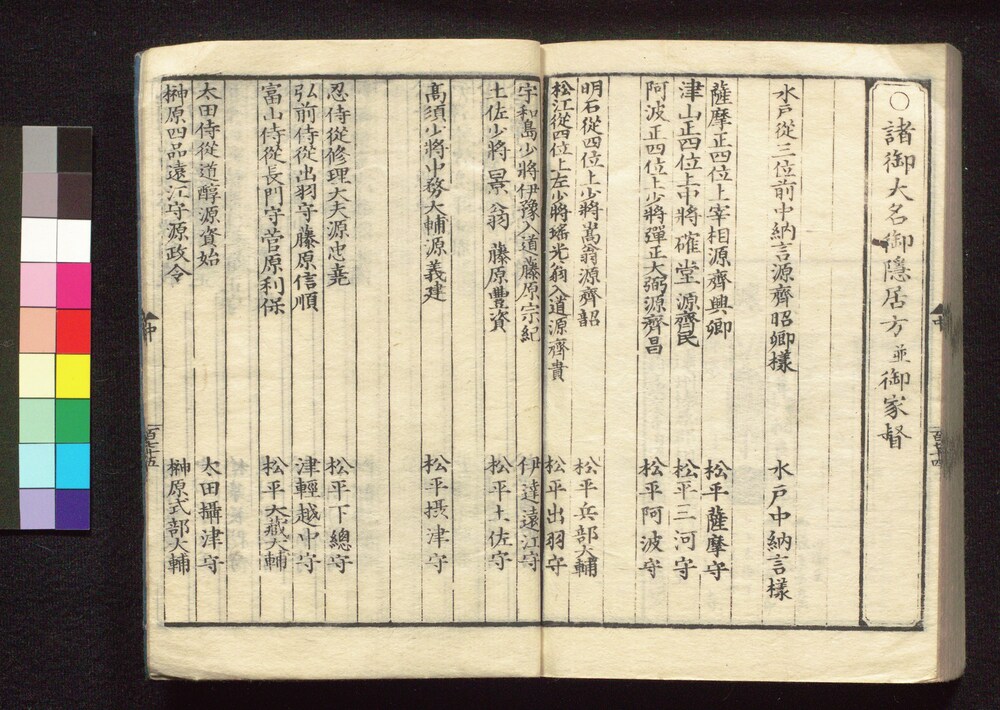 ○諸御大名御隱居方並御家督
水戸從三位前中納言源齊昭卿樣 水戸中納言樣
薩摩正四位上宰相源齊興卿 松平薩摩守
津山正四位上中將確堂源齊民 松平三河守
阿波正四位上少將彈正大弼源齊昌 松平阿波守
明石從四位上少將嵩翁源齊韶 松平兵部大輔
松江從四位上左少將瑤光翁入道源齊貴 松平出羽守
宇和島少將伊豫入道藤原宗紀 伊達遠江守
土佐少將景翁藤原豐資 松平土佐守
髙須少將中務大輔源義建 松平摂津守
忍侍從修理大夫源忠堯 松平下總守
弘前侍從出羽守藤原信順 津輕越中守
富山侍從長門守菅原利保 松平大藏大輔
太田侍從道醇源資始 太田攝津守
榊原四品遠江守源政令 榊原式部大輔
中
百七十四
中
百七十五